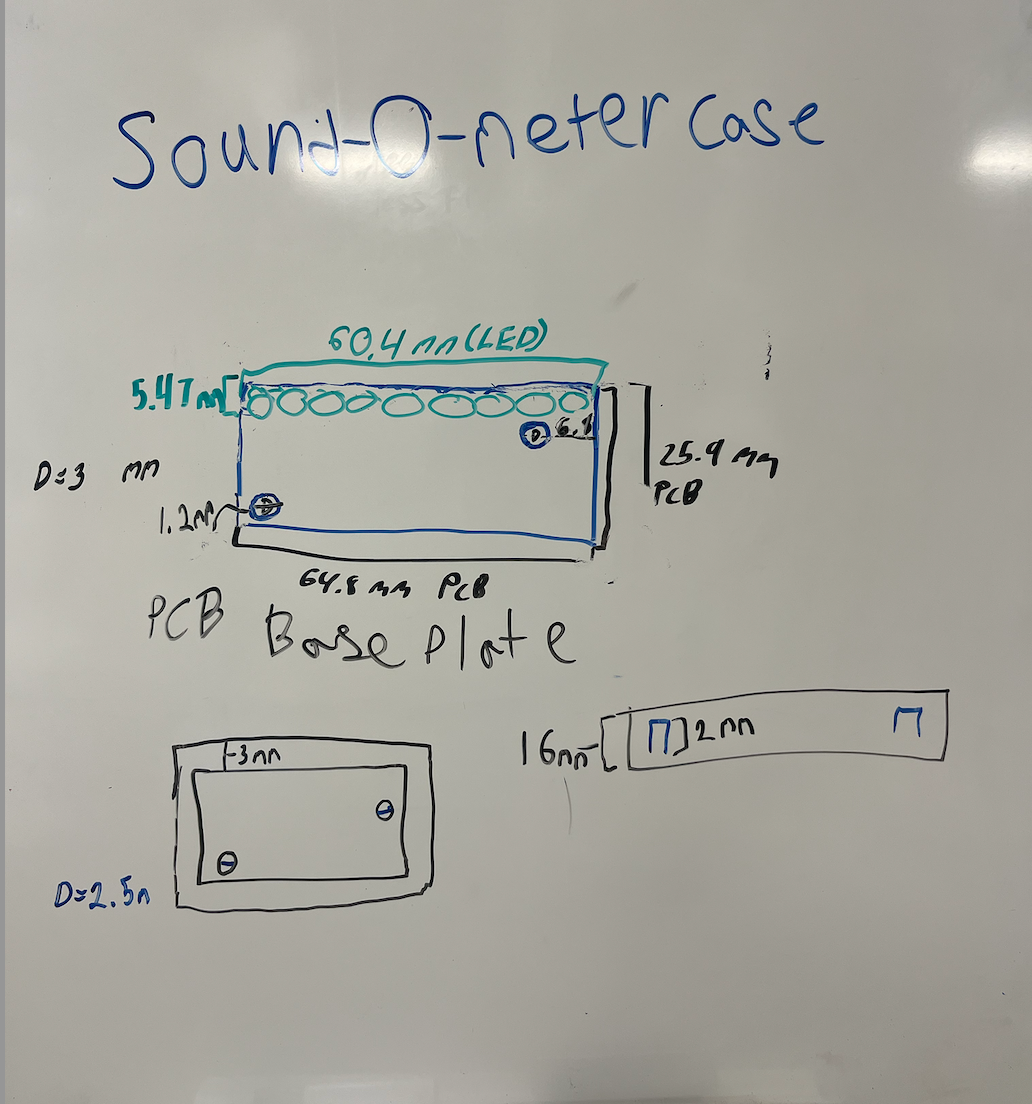 Sound-O-meter Case
60.4 mm (LED)
5.47 m
6.8
D=3 mm
25.9 mm
PCB
1.2m
64.8 mm PCB
PCB Base Plate
3mm
16mm
2mm
D=2.5m